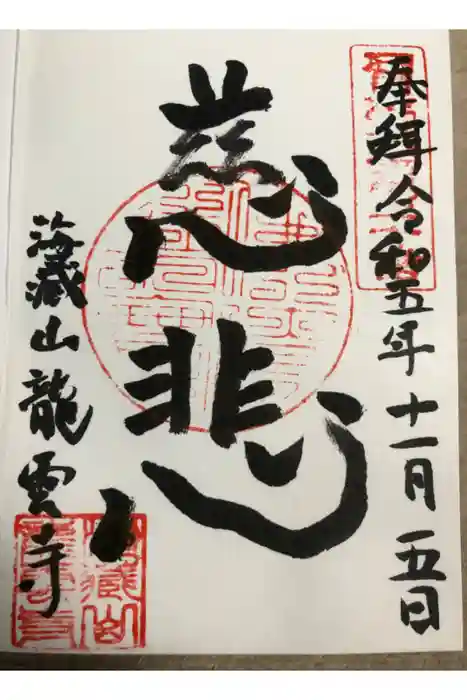 奉拜令和五年十一月五日
慈悲
海蔵山龍雲寺